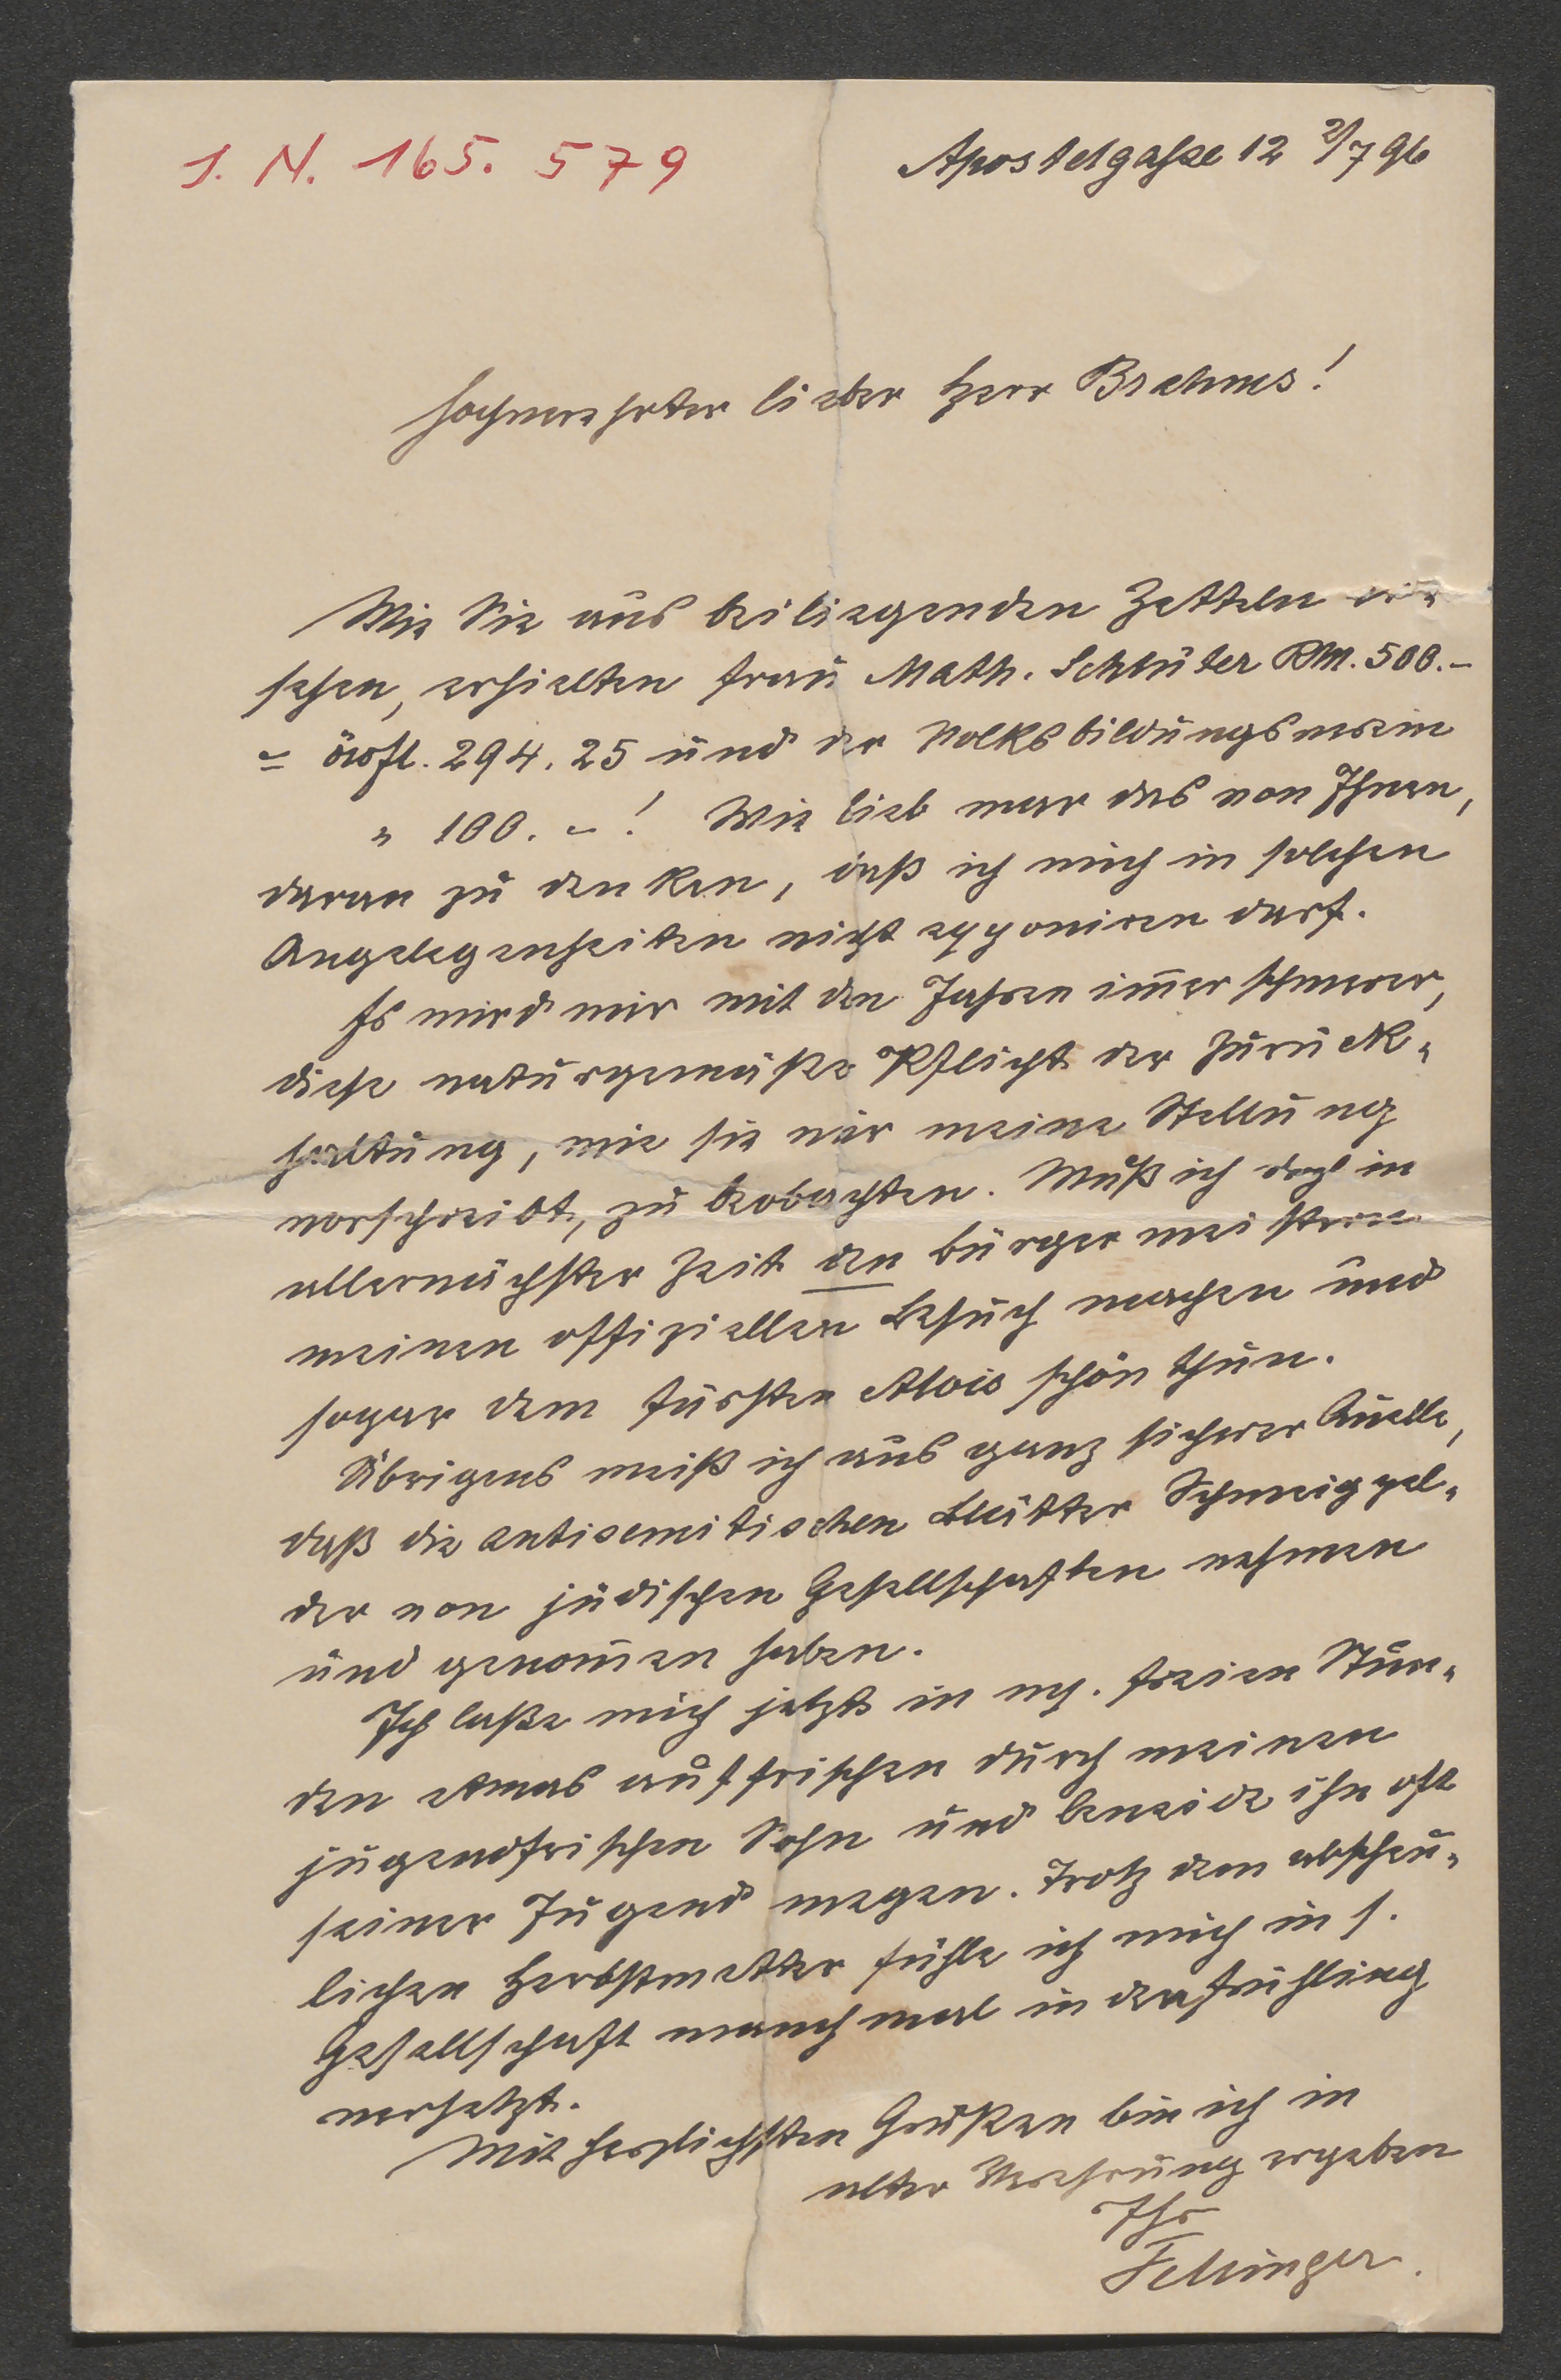 I. N. 165. 579
Apostelgaße 12 2/7 96
Hochverehrter lieber Herr Brahms!
Wie Sie aus beiliegenden Zetteln
sehen, erhielten Frau Math. Schlüter RM. 500.–
= öwfl. 294.25 und der Volksbildungsverein
" 100.–! Wie lieb war das von Ihnen,
daran zu denken, daß ich mich in solchen
Angelegenheiten nicht exponiren darf.
Es wird mir mit den Jahren im̅er schwerer,
diese naturgemäße Pflicht der Zurück-
haltung, wie sie mir meine Stellung
vorschreibt, zu beobachten. Muß ich doch in
allernächster Zeit den Bürgermeistern
meinen offiziellen Besuch machen und
sogar dem Fürsten Alois schön thun.
Übrigens weiß ich aus ganz sicherer Quelle,
daß die antisemitischen Blätter Schweiggel-
der von jüdischen Gesellschaften nehmen
und genom̅en haben.
Ich laße mich jetzt in m. freien Stun-
den etwas auffrischen durch meinen
jugendfrischen Sohn und beneide ihn oft
seiner Jugend wegen. Trotz dem abscheu-
lichen Herbstwetter fühle ich mich in s.
Gesellschaft manchmal in den Frühling
versetzt.
Mit herzlichsten Grüßen bin ich in
alter Verehrung ergeben
Ihr
Fellinger.